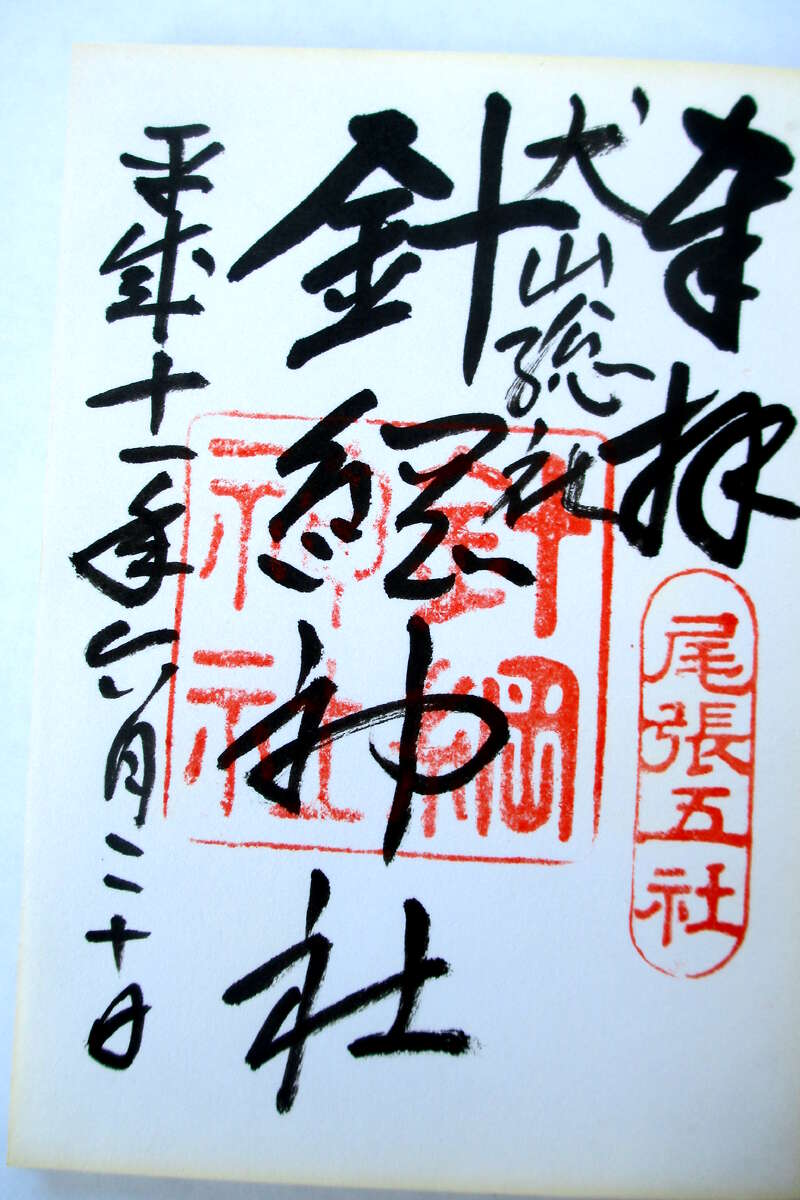 奉拝
尾張五社
犬山総社
針綱神社
針綱
神社
平成十一年六月二十日